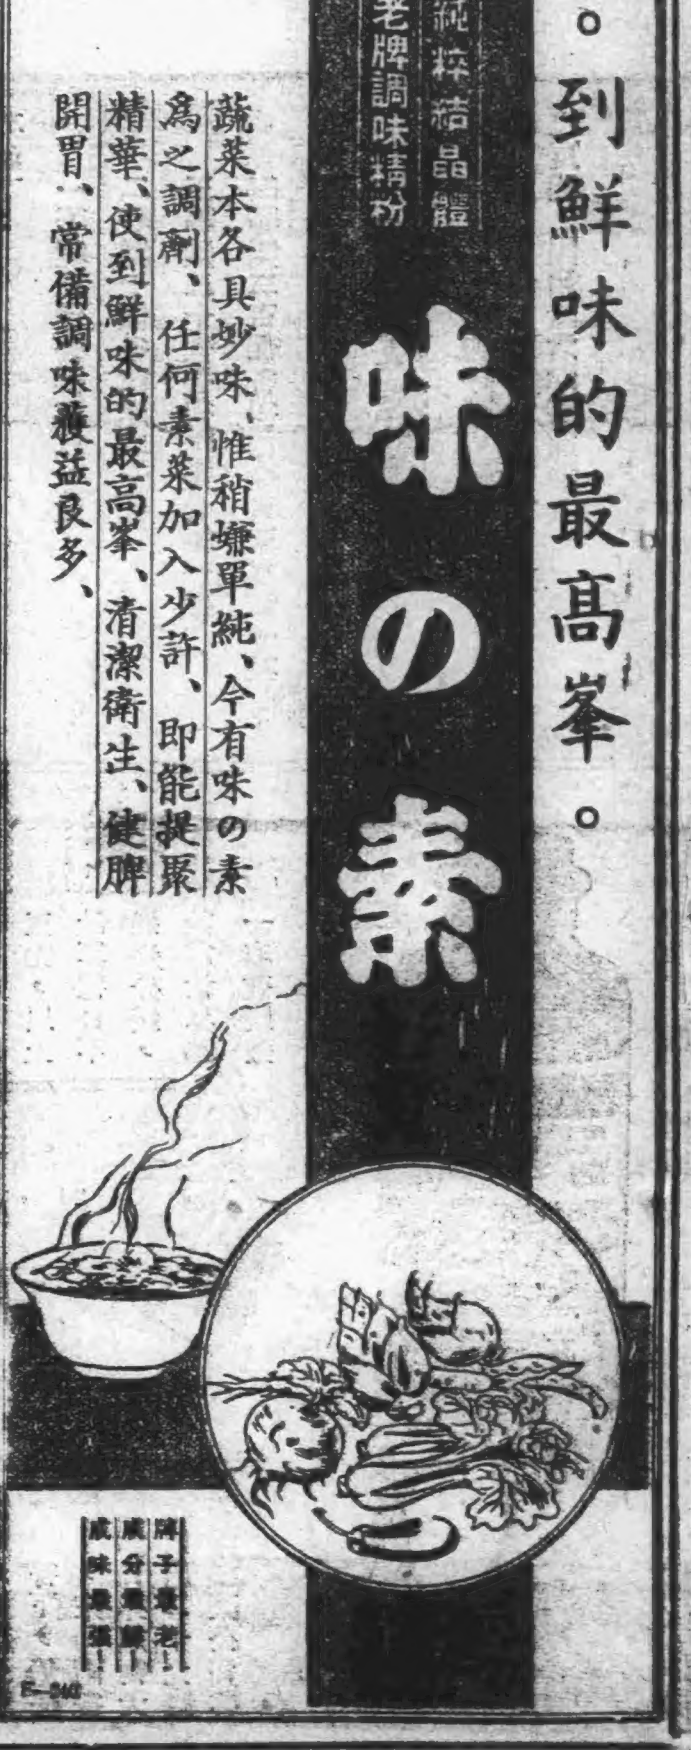 。到鮮味的最高峯。
純粹結晶體
老牌調味精粉
味の素
蔬菜本各具妙味、惟稍嫌單純、今有味の素
爲之調劑、任何素菜加入少許、即能提聚
精華、使到鮮味的最高峯、淸潔衛生、健脾
開胃、常備調味獲益良多、
牌子最老！
成分最
味最强！